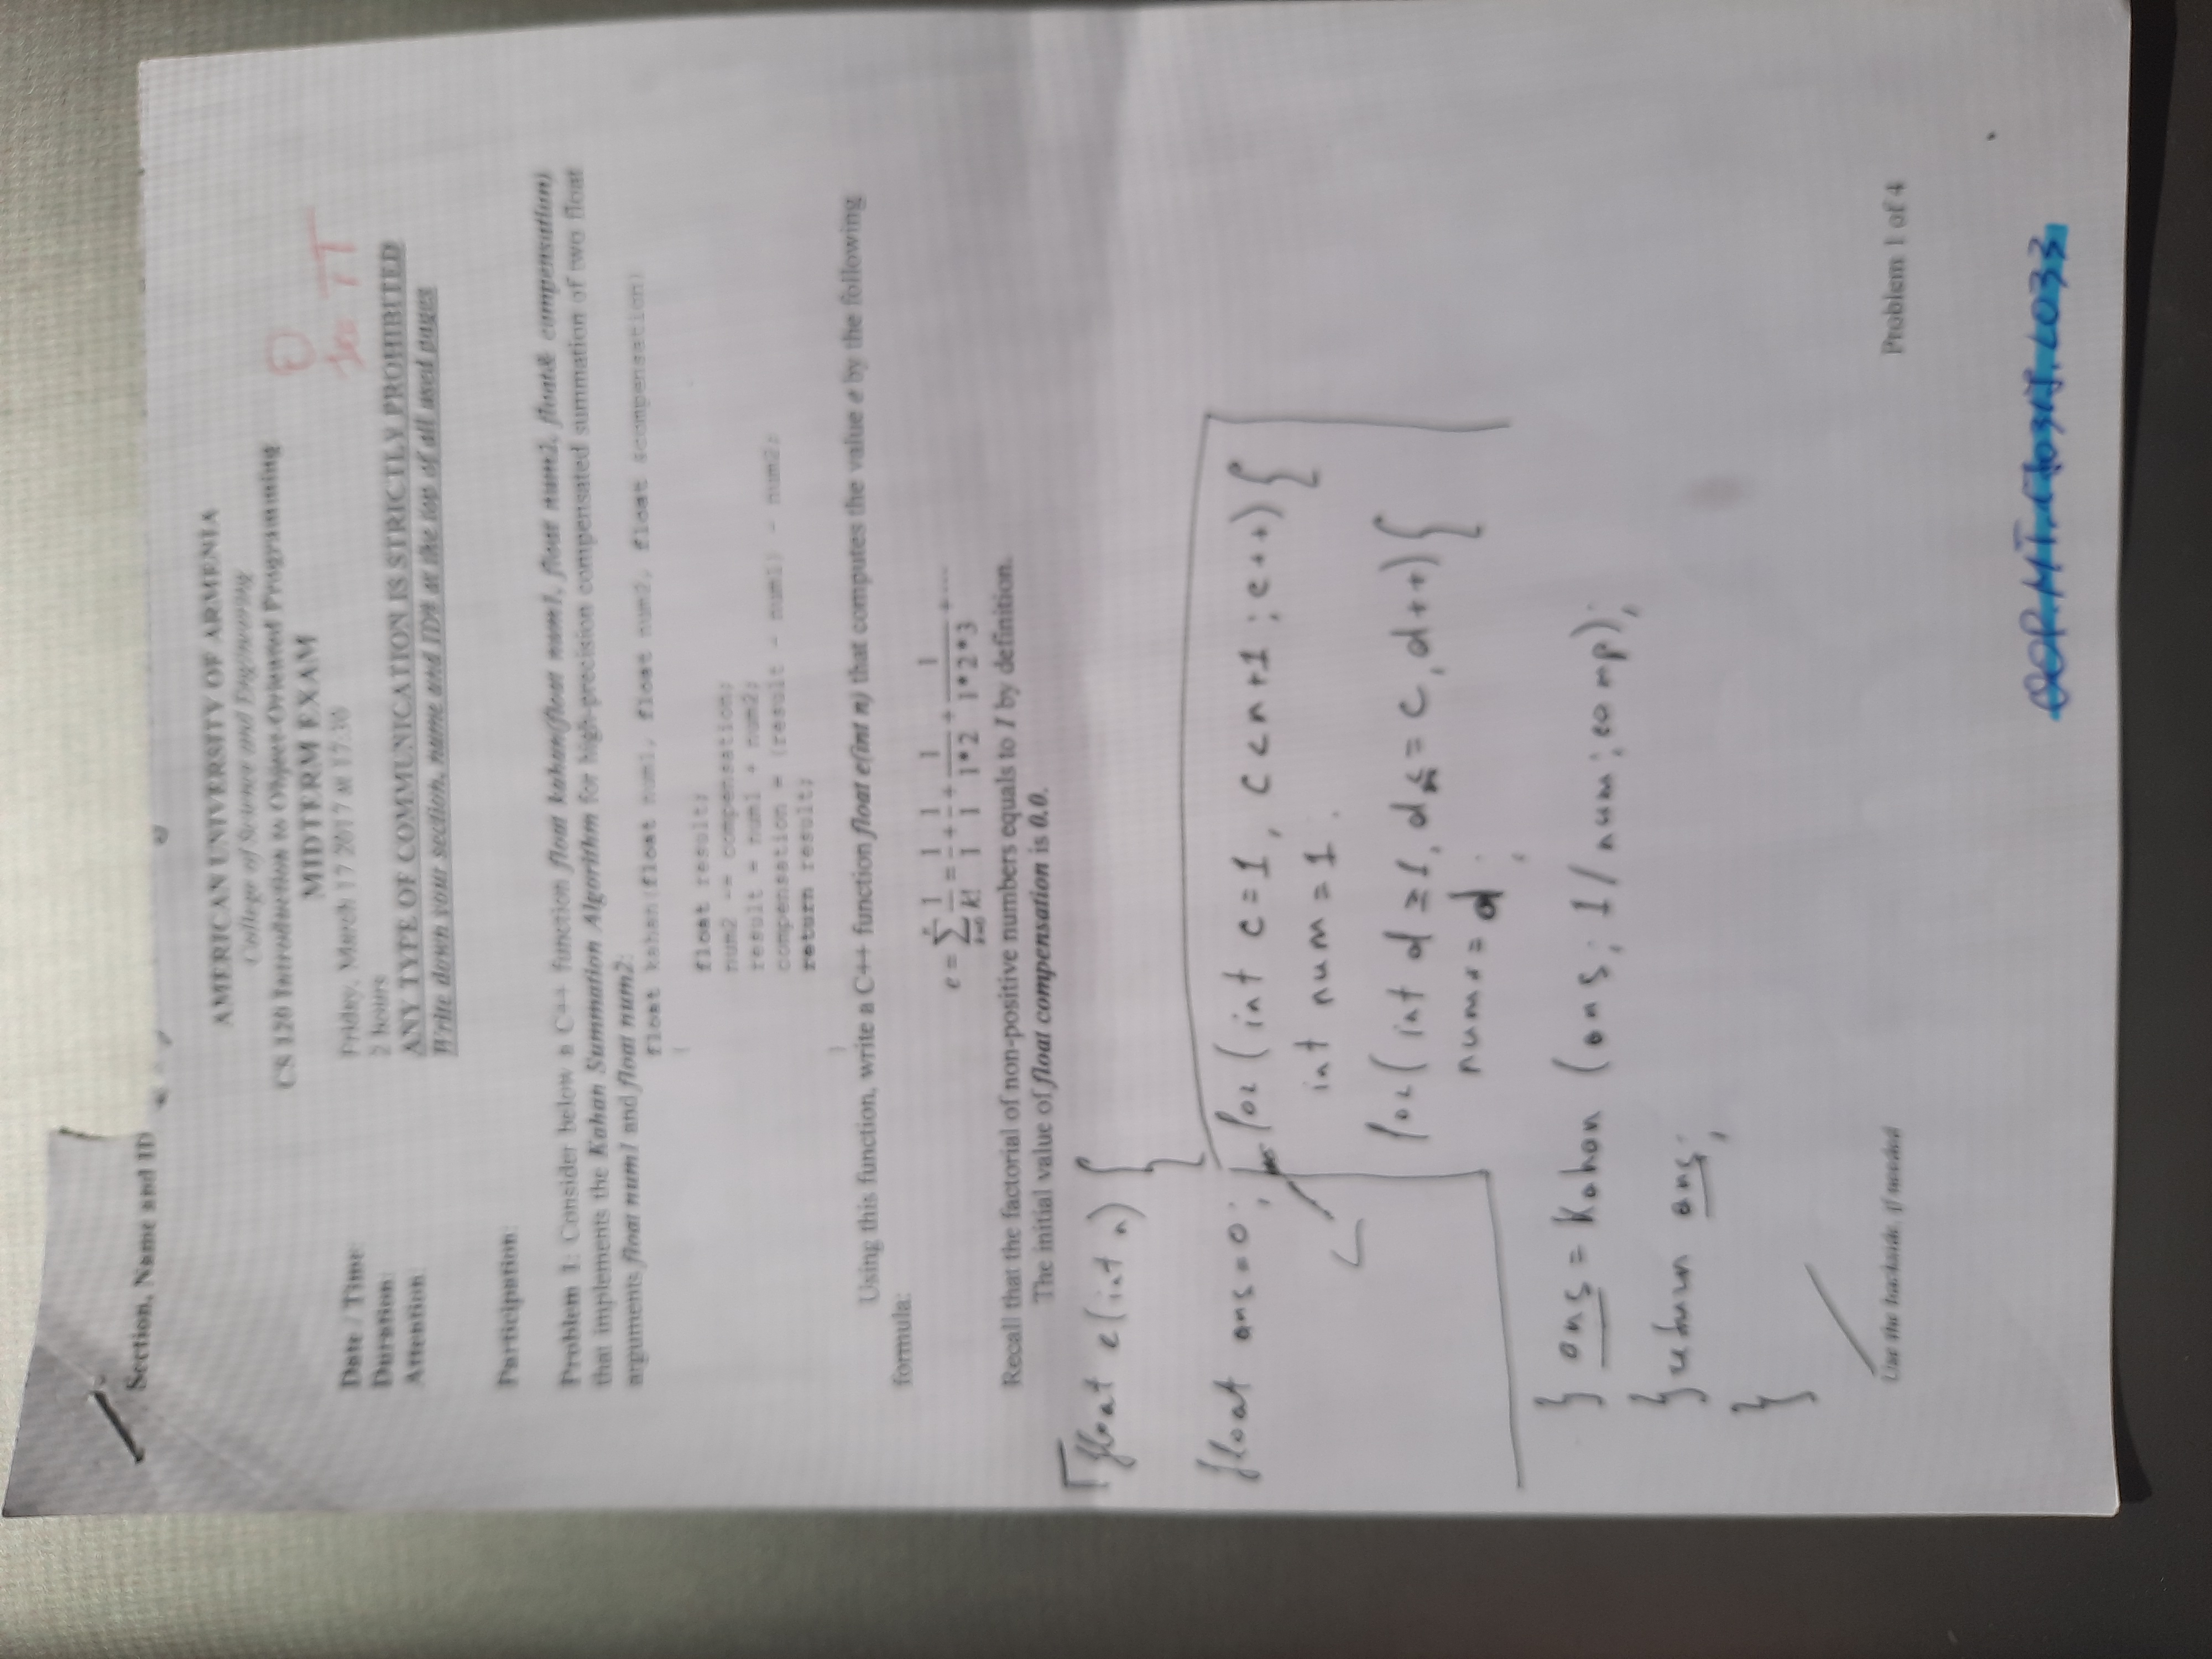 Section, Name and ID
AMERICAN UNIVERSITY OF ARMENIA
College of Science and Engineering
CS 120 Introduction to Object-Oriented Programming
MIDTERM EXAM
Date / Time: Friday, March 17 2017 at 17:30
Duration: 2 hours
Attention: ANY TYPE OF COMMUNICATION IS STRICTLY PROHIBITED
Write down your section, name and ID# at the top of all used pages
Participation:
Problem 1: Consider below a C++ function float kahan(float num1, float num2, float& compensation)
that implements the Kahan Summation Algorithm for high-precision compensated summation of two float
arguments float num1 and float num2:
float kahan(float num1, float num2, float &compensation)
{
float result;
num2 -= compensation;
result = num1 + num2;
compensation = (result - num1) - num2;
return result;
}
Using this function, write a C++ function float e(int n) that computes the value e by the following
formula:
e = ∑ k=0 n 1/k! = 1/1 + 1/1 + 1/1*2 + 1/1*2*3 + ...
Recall that the factorial of non-positive numbers equals to 1 by definition.
The initial value of float compensation is 0.0.
float e(int n) {
float ans=0; for (int c=1, c<n+1; c++) {
int num = 1.
for(int d=1, d<=c, d++) {
num*=d;
} ans = Kahan (ans; 1/num; comp);
} return ans;
}
Use the backside, if needed
Problem 1 of 4